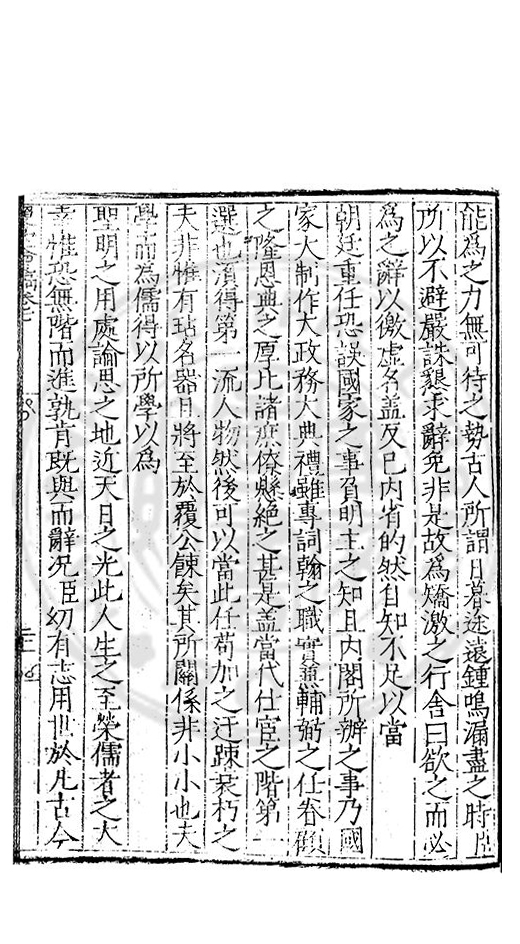 能為之力無可待之勢古人所謂日暮途遠鍾鳴漏盡之時臣
所以不避嚴誅懇求辭免非是故為矯激之行舍曰欲之而必
為之辭以徼虛名盖反己内省的然自知不足以當
朝廷重任恐誤國家之事負明主之知且内閣所辦之事乃國
家大制作大政務大典禮雖專詞翰之職實兼輔弼之任眷顧
之隆恩典之厚比諸庶僚懸絶之甚是盖當代仕宦之階第一
選也湏得第一流人物然後可以當此任苟加之迂踈衰朽之
夫非惟有玷名器且將至於覆公餗矣其所關係非小小也夫
學而為儒得以所學以為
聖明之用處論思之地近天日之光此人生之至榮儒者之大
幸惟恐無階而進孰肯既與而辭况臣幼有志用世於凡古今